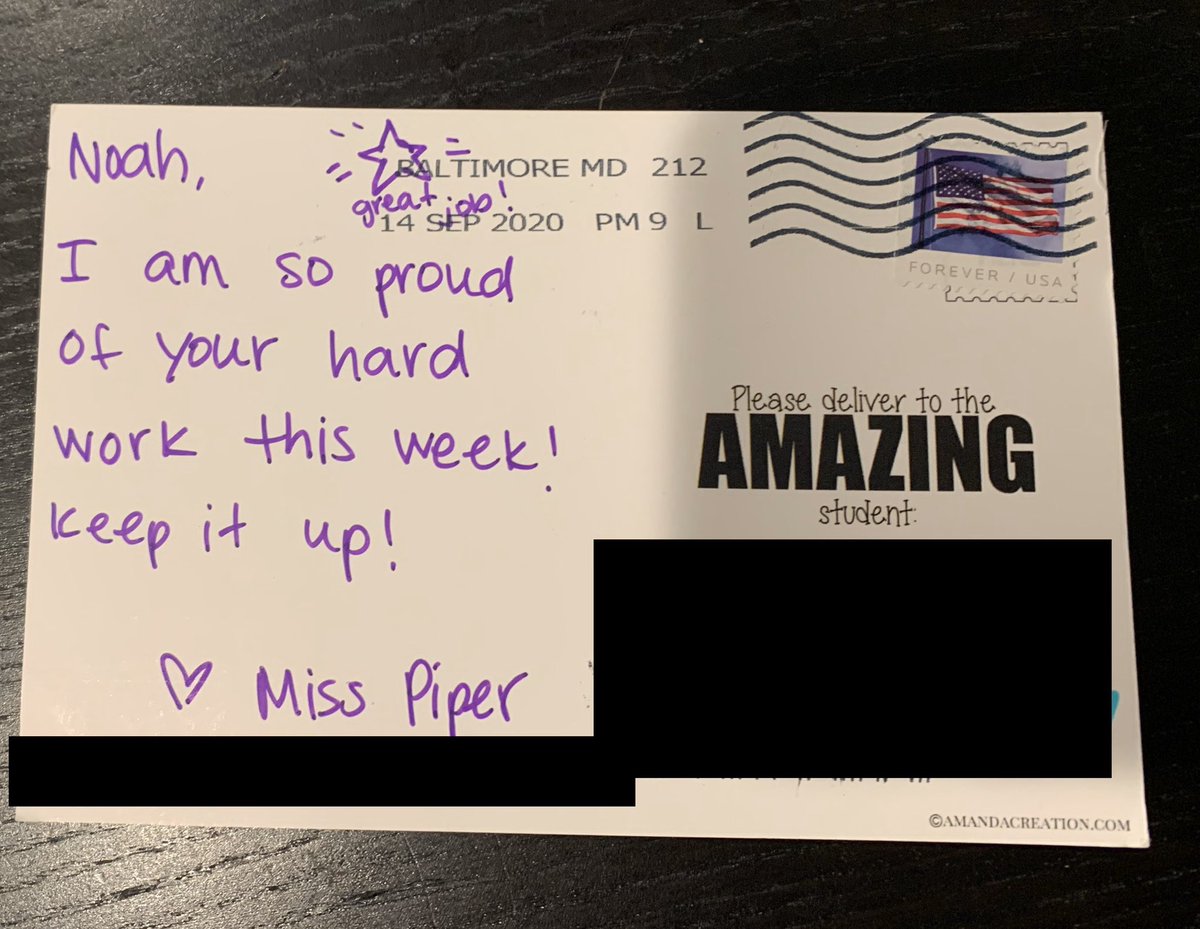 Noah,
great job!
BALTIMORE MD 212
14 SEP 2020 PM 9 L
I am so proud
of your hard
work this week!
keep it up!
♡ Miss Piper
FOREVER / USA
Please deliver to the
AMAZING
student:
©AMANDACREATION.COM